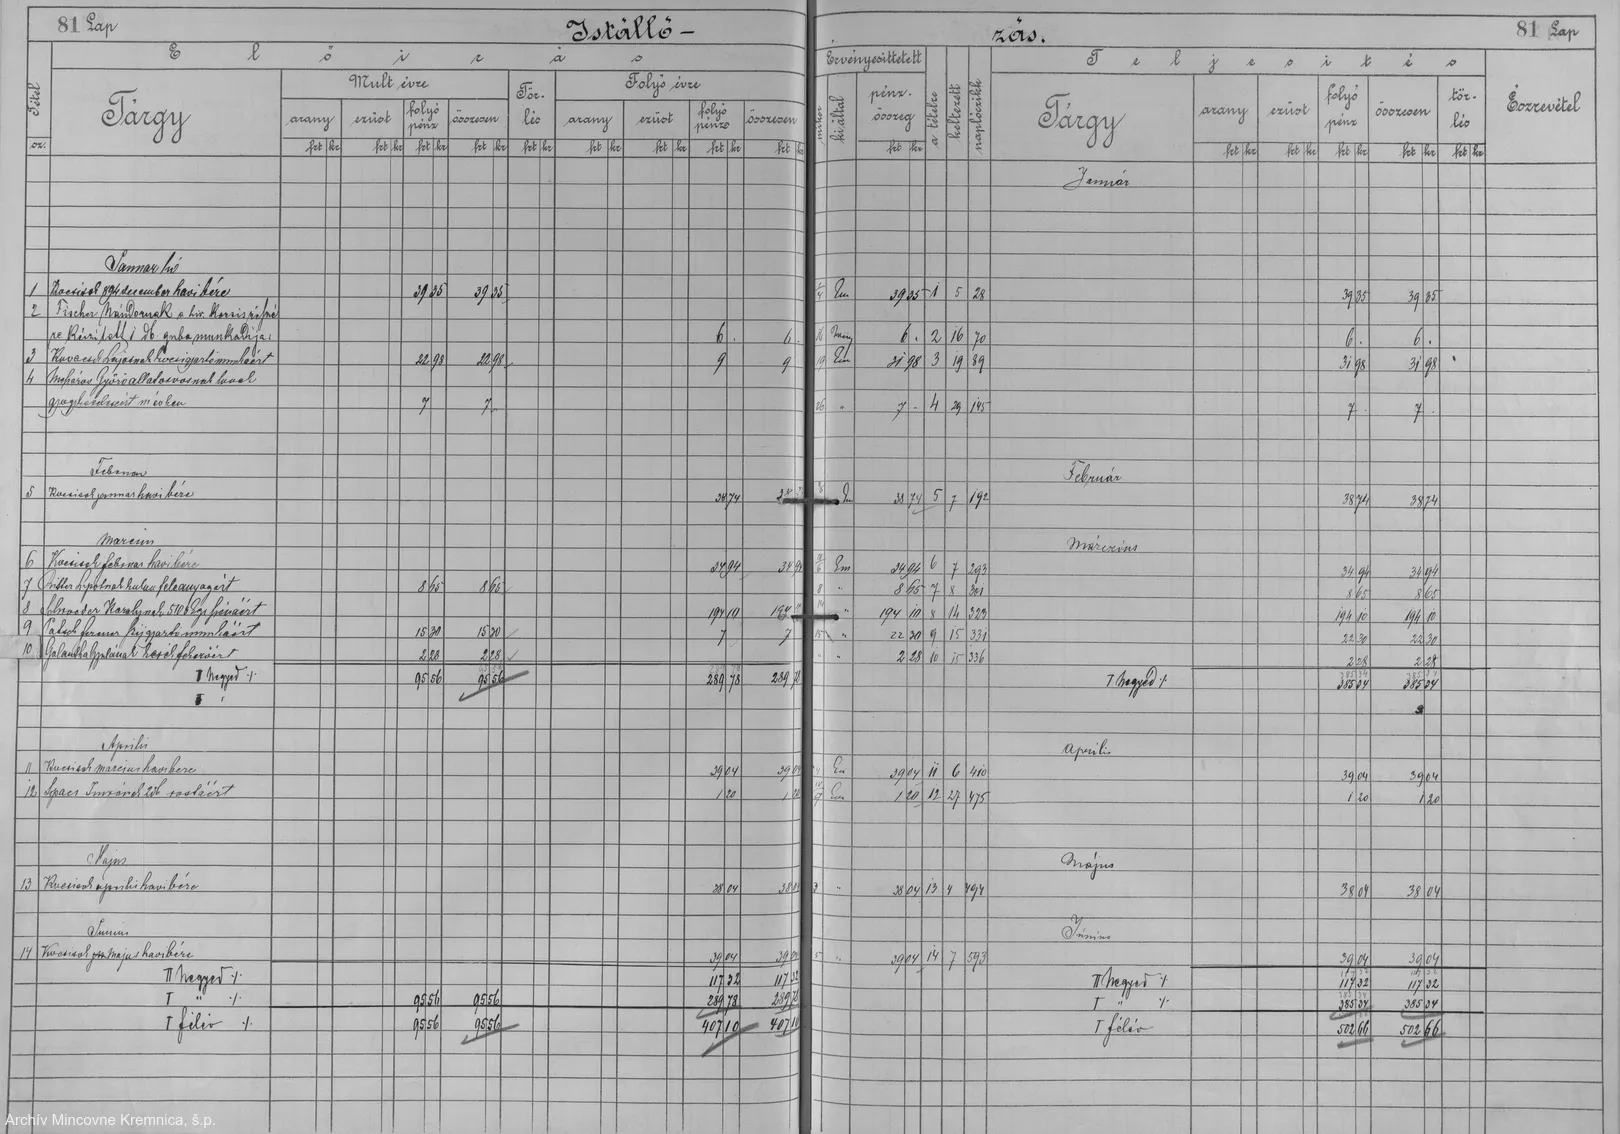 81 Lap
Istálló-
zás.
81 Lap
Előirás
Tétel
sz.
Tárgy
Mult évre
arany
ezüst
folyó pénz
összesen
frt kr frt kr frt kr frt kr
Tör-
lés
frt kr
Folyó évre
arany
ezüst
folyó pénz
összesen
frt kr frt kr frt kr frt kr
Érvényesittetett
mikor
ki által
pénz-
összeg
frt kr
a tételre
keltezett
naplócikk
Teljesités
Tárgy
arany
ezüst
folyó pénz
összesen
tör-
lés
frt kr frt kr frt kr frt kr frt kr
Észrevétel
Január
Januar hó
1 Kocsisok 894 december havi bére 39 35 39 35 Em 39 35 1 5 28 39 35 39 35
2 Fischer Nándornak
munkadija 6 . 6 . 6 . 2 16 70 6 . 6 .
3 22 98 22 98 9 9 19 Em 31 98 3 19 89 31 98 31 98
4
7 7 26 " 7 - 4 29 145 7 . 7 .
Februar
Február
5 Kocsisok januar havi bére 38 74 38 74 5 7 192 38 74 38 74
Marcius
Márczius
6 Kocsisok februar havi bére 34 94 34 94 Em 34 94 6 7 293 34 94 34 94
7 8 65 8 65 8 " 8 65 7 8 301 8 65 8 65
8 Schroeder Karolynak 194 10 194 " 194 10 8 14 323 194 10 194 10
9 15 30 15 30 7 7 15 " 22 30 9 15 331 22 30 22 30
10 2 28 2 28 " " 2 28 10 15 336 2 28 2 28
I Negyed ./. 95 56 95 56 289 78 289 78 I Negyed ./. 385 34 385 34
Aprilis
Április
11 Kocsisok márczius havi bére 39 04 39 04 39 04 11 6 410 39 04 39 04
12 1 20 1 20 1 20 12 27 475 1 20 1 20
Majus
Május
13 Kocsisok aprilis havi bére 38 04 38 04 3 " 38 04 13 4 494 38 04 38 04
Junius
Június
14 Kocsisok Majus havi bére 39 04 39 04 5 " 39 04 14 7 593 39 04 39 04
II Negyed ./. 117 32 117 32 II Negyed ./. 117 32 117 32
I " ./. 95 56 95 56 289 78 289 78 I " ./. 385 34 385 34
I félév ./. 95 56 95 56 407 10 407 10 I félév 502 66 502 66
Archív Mincovne Kremnica, š.p.